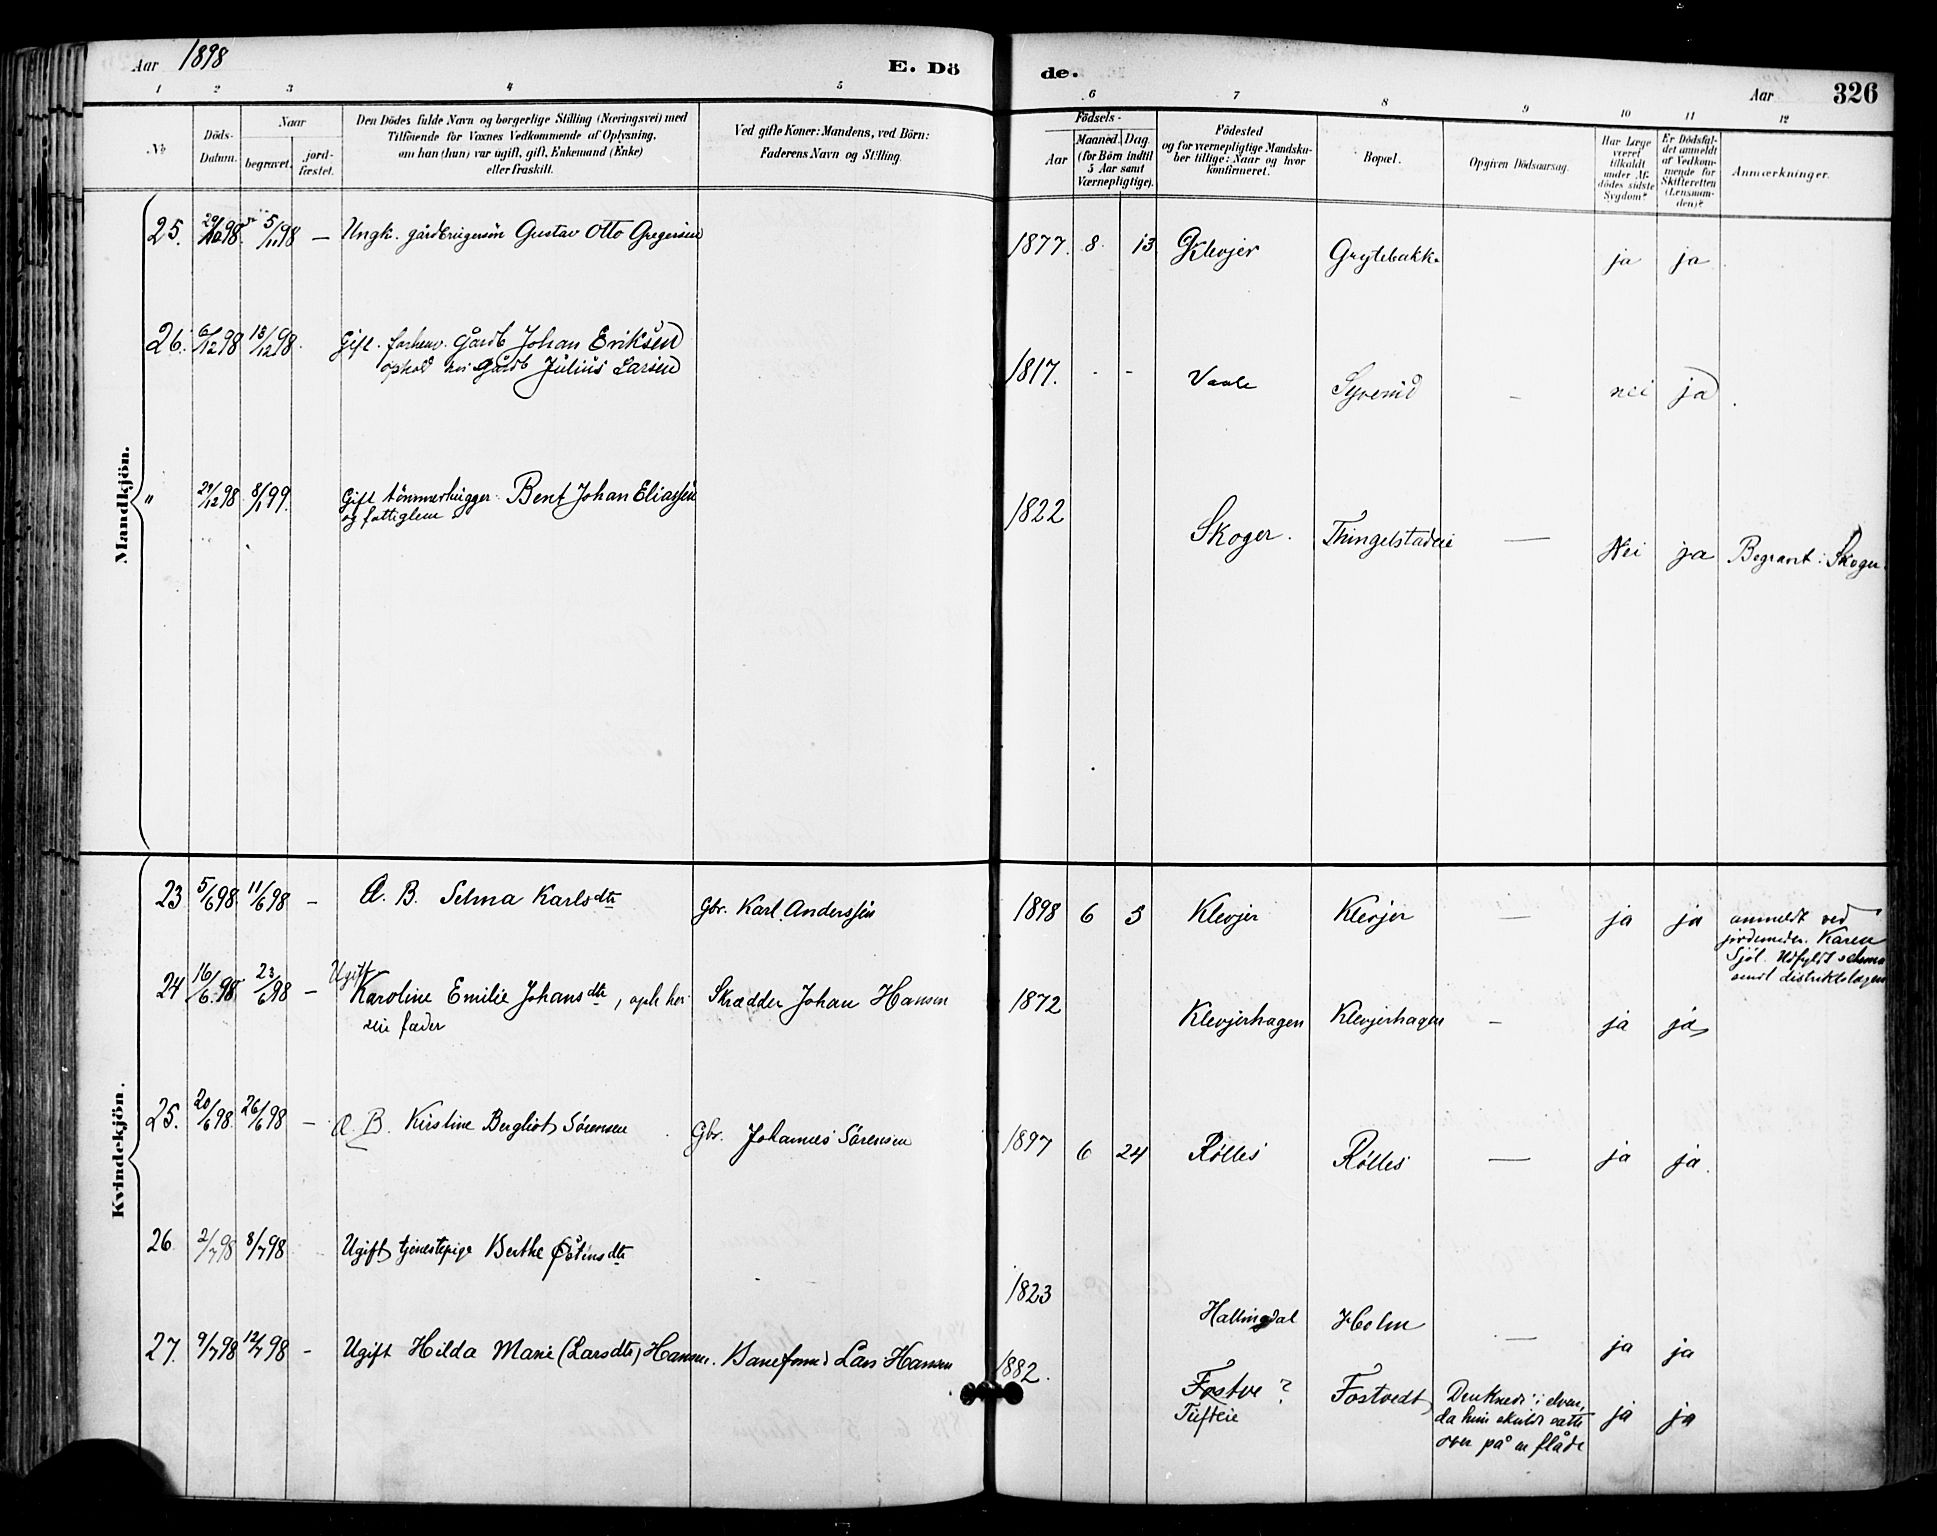 Aar 1898
E. Dö
de.
Aar
326
1 2 3 4 5 6 7 8 9 10 11 12
No
Döds-
Datum.
Naar
begravet.
jord-
fæstet.
Den Dödes fulde Navn og borgerlige Stilling (Næringsvei) med
Tilföiende for Voxnes Vedkommende af Oplysning,
om han (hun) var ugift, gift, Enkemand (Enke)
eller fraskilt.
Ved gifte Koner: Mandens, ved Börn:
Faderens Navn og Stilling.
Födsels-
Aar
Maaned. Dag.
(for Börn indtil
5 Aar samt
Værnepligtige).
Födested
og for værnepligtige Mandska-
ber tillige: Naar og hvor
konfirmeret.
Bopæl.
Opgiven Dödsaarsag.
Har Læge
været
tilkaldt
under Af-
dödes sidste
Sygdom?
Er Dödsfal-
det anmeldt
af Vedkom-
mende for
Skifteretten
(Lensman-
den)?
Anmærkninger.
Mandkjön.
25. 29/10 98. 5/11 98 — Ungk. gårdbrugersøn Gustav Otto Gregersen 1877. 8. 13 Klevjer Grytebakke ja ja
26. 6/12 98 13/12 98. Gift. forhenv. Gårdb Johan Eriksen
ophold hos gårdb Julius Larsen
1817. - - Vaale Syverud – nei ja
" 29/12 98 8/1 99. Gift tømmerhugger. Bent Johan Eliassen
og fattiglem
1822 Skoger. Thingelstadeie — Nei ja Begravet i Skoger.
Kvindekjön.
23 5/6 98. 11/6 98 – Æ. B. Selma Karlsdtr Gbr. Karl Anderssen 1898 6 5 Klevjer Klevjer — ja ja anmeldt ved
jordemoder. Karen
Sjøl. Udfyldt schema
sendt distriktslægen
24 16/6 98 23/6 98 – Ugift
Karoline Emilie Johansdtr, oph. hos Skrædder Johan Hansen
sin fader
1872 Klevjerhagen Klevjerhagen – ja ja
25. 20/6 98. 26/6 98 – Æ. B. Kirstine Bergliot Sørensen Gbr. Johannes Sørensen 1897 6 24 Rølles Rølles — ja ja.
26 2/7 98 8/7 98 Ugift tjenestepige Berthe Østensdtr 1823 Hallingdal Holm — ja ja
27. 9/7 98 12/7 98 – Ugift Hilda Marie (Larsdtr) Hansen. Baneform. Lars Hansen 1882. Fostve ?
Tufteie
Fostvedt Druknede i elven,
da hun skulde sætte
over på en flåde
ja ja